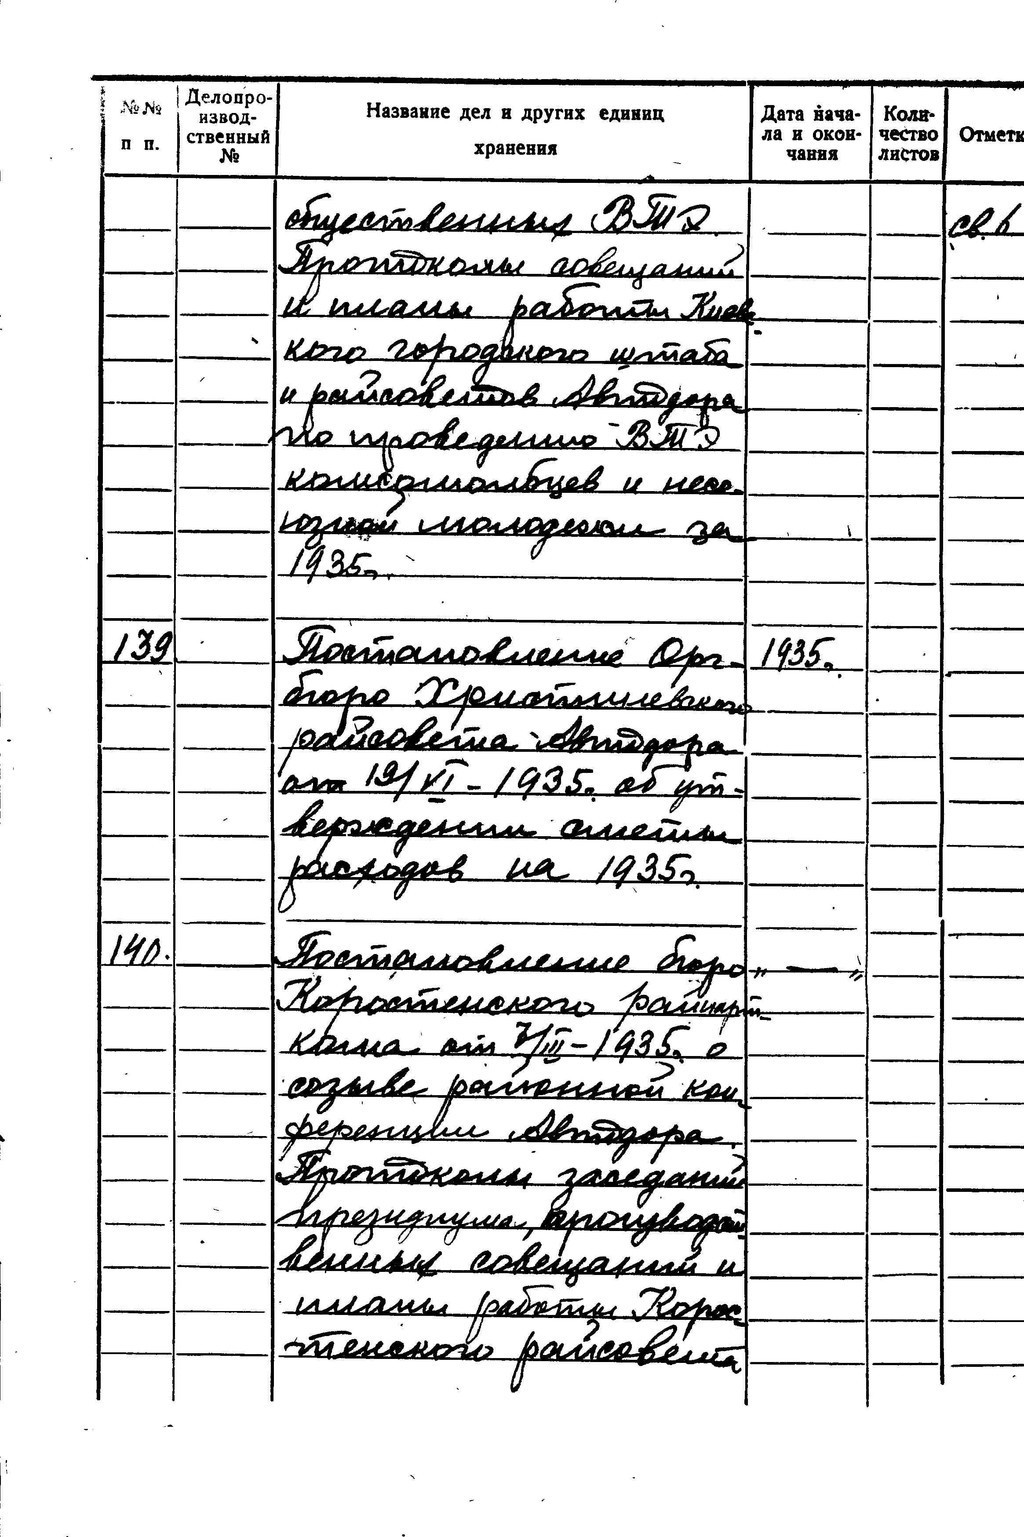 №№ п п.
Делопро-
извод-
ственный
№
Название дел и других единиц
хранения
Дата нача-
ла и окон-
чания
Коли-
чество
листов
Отметк
общественных ВТЭ. св. 6
Протоколы совещаний
и планы работы Киевс-
кого городского штаба
и райсоветов Автодора
по проведению ВТЭ
комсомольцев и несо-
юзной молодежи за
1935г.
139 Постановление Орг- 1935г.
бюро Христиневского
райсовета Автодора
от 19/VI-1935г. об ут-
верждении сметы
расходов на 1935г.
140. Постановление бюро „ — „
Коростенского райпарт-
кома от 7/III-1935г. о
созыве районной кон-
ференции Автодора.
Протоколы заседаний
президиума, производст
венных совещаний и
планы работы Корос-
тенского райсовета